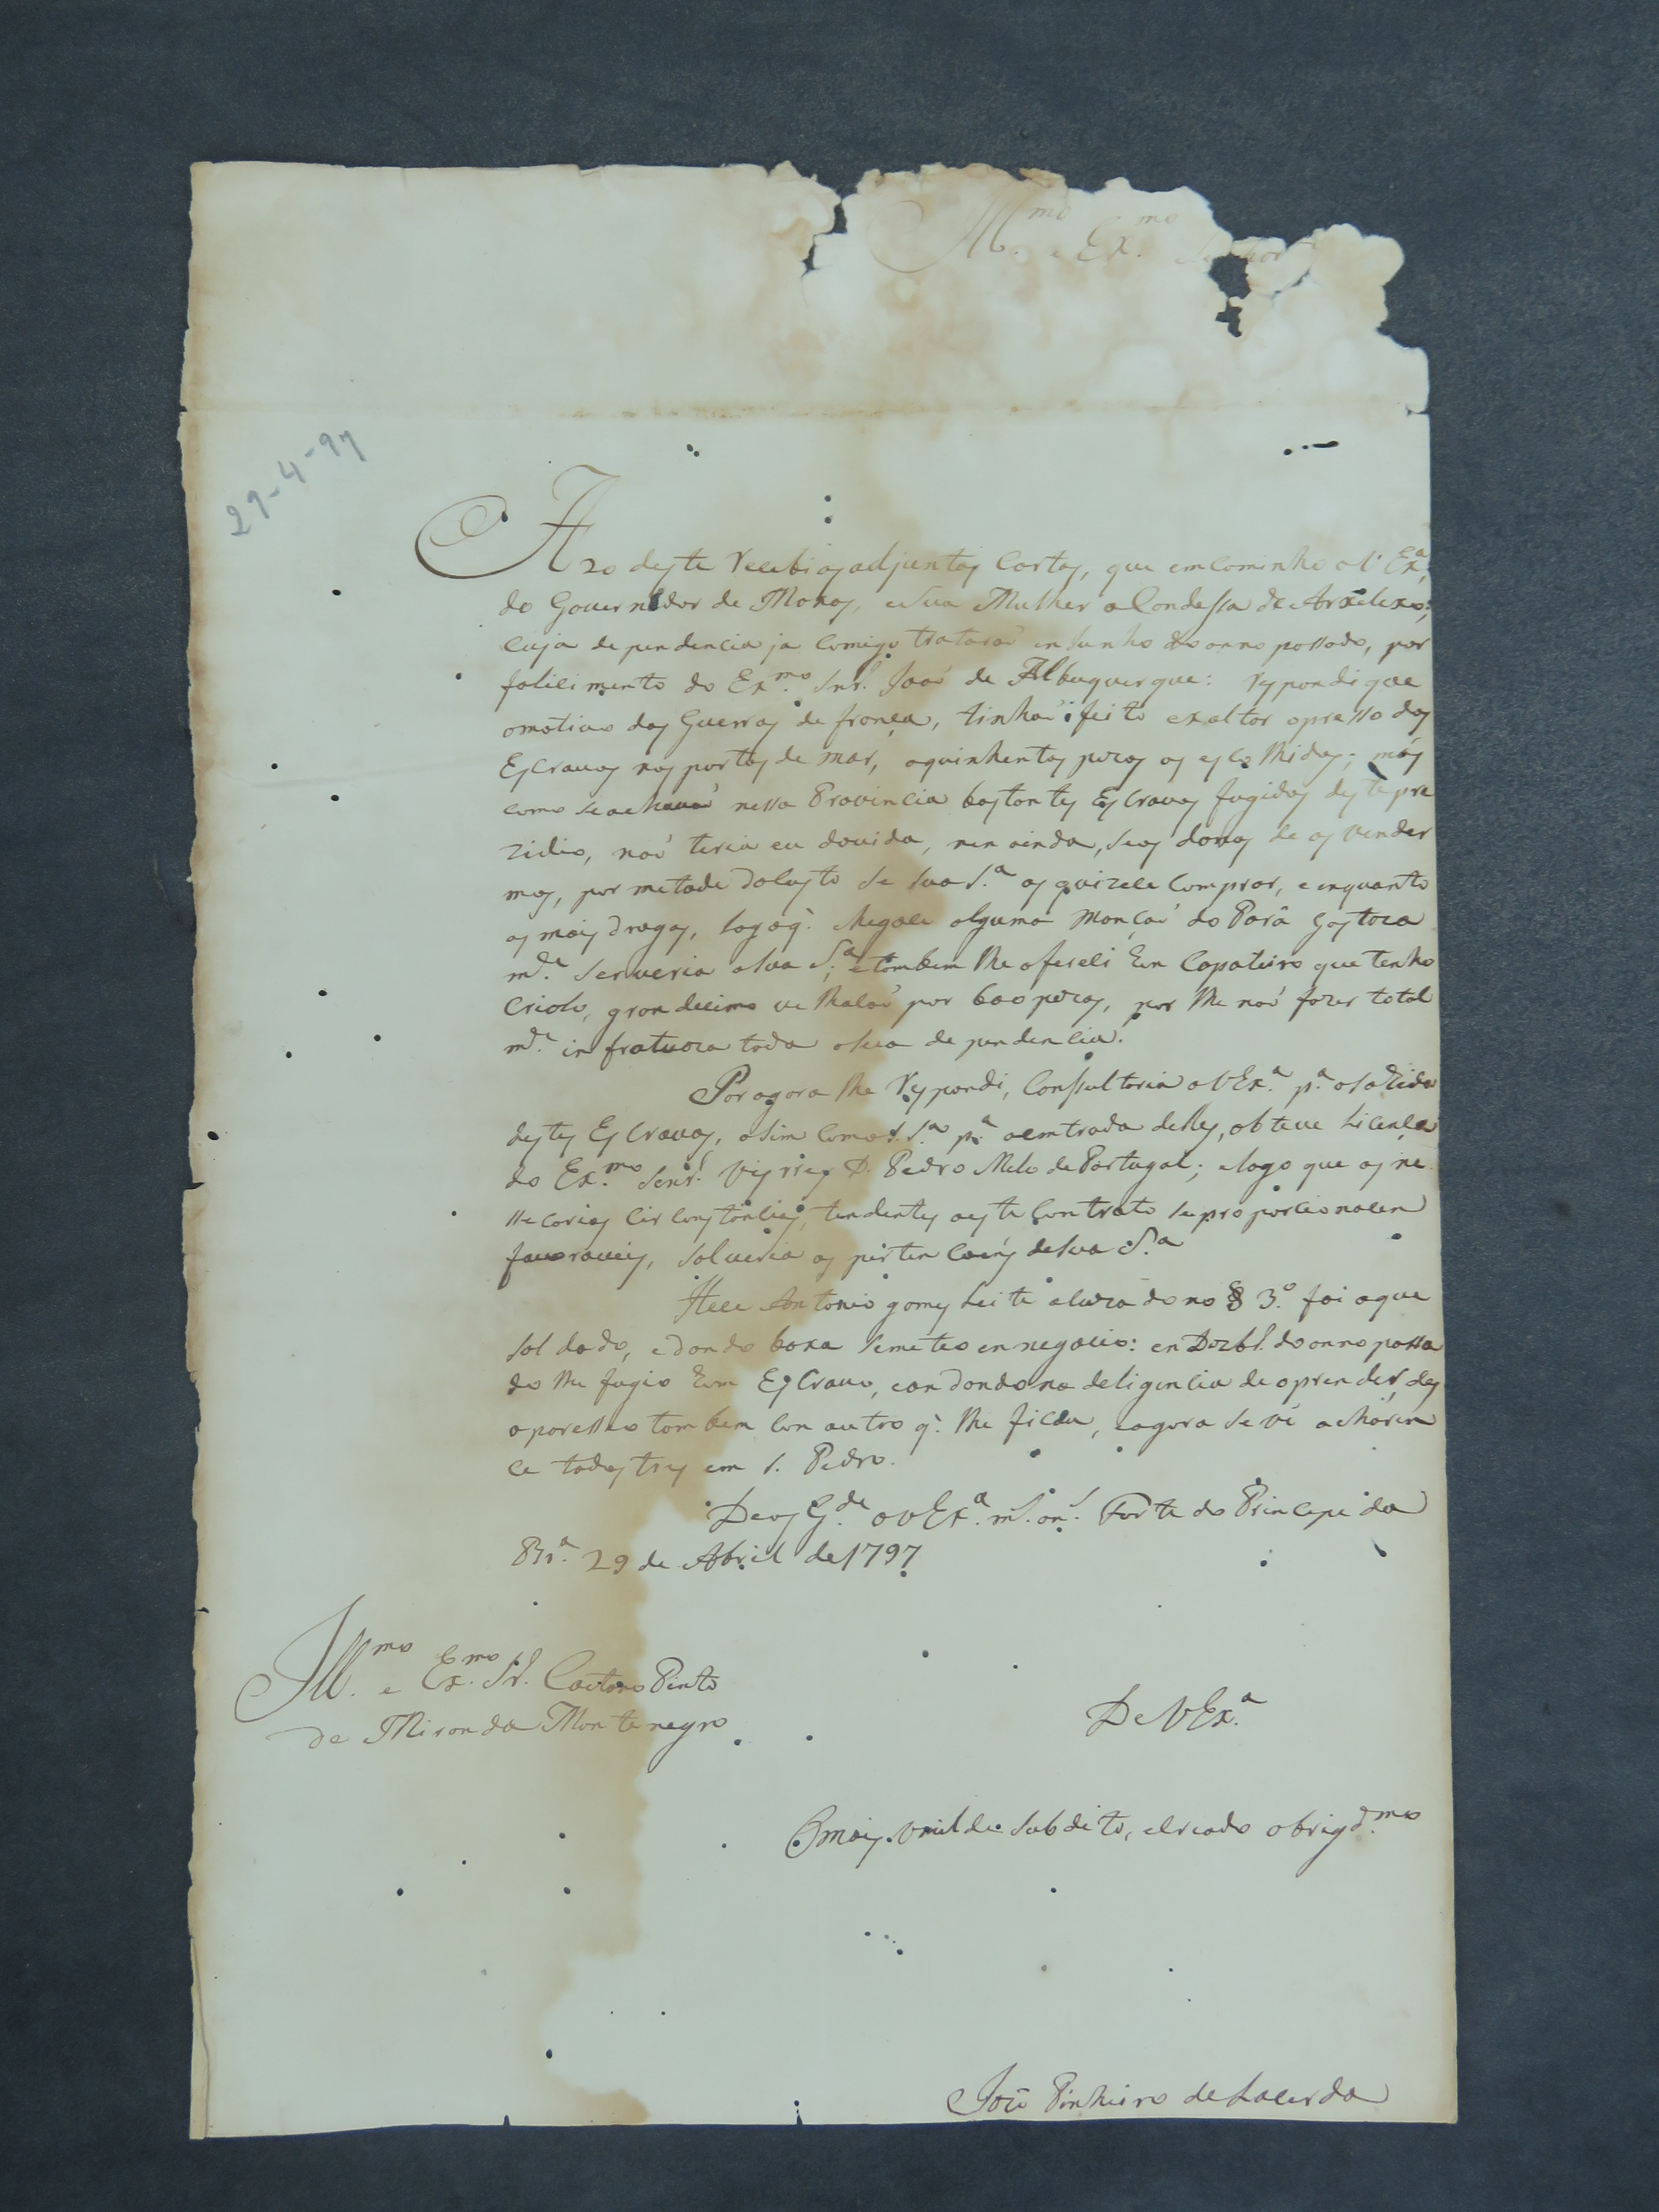 Ill.mo e Ex.mo Senhor
29-4-97
A 20 deste recebi as adjuntas Cartas, que emcaminho a V. Ex.a,
do Governador de Moxos, e Sua Mulher a Condessa de
Cuja dependencia ja Comigo trataraõ en Junho do anno passado, por
falicimento do Ex.mo Snr. Joaõ de Albuquerque: respondi que
o motivo das Guerras de frança, tinhaõ feito exaltar o presso dos
Escravos nos portos de mar, a quinhentos pezos os escolhidos; mas
como se achavaõ nessa Provincia bastantes Escravos fugidos deste pre
zidio, naõ teria eu douvida, nen ainda, seos donos de os vender
mos, por metade do Custo se Sua S.a os quizece Comprar, e enquanto
as mais drogas, logo q. chegace alguma monçaõ do Parâ gostoza
m.te Serveria a Sua S.a, e tambem lhe ofereci hun Capateiro que tenho
Criolo, grandecimo velhacaõ por 600 pezos, por lhe naõ fazer total
m.te infratuoza toda a sua dependencia.
Por agora lhe respondi, Consultaria a V Ex.a p.a a sahida
destes Escravos, asim como S. S.a p.a a emtrada delles, obteve Licença
do Ex.mo Senr. Visrrey D. Pedro Melo de Portugal; e logo que as ne
cecarias Circonstoncias, tendentes a este Contrato se proporcionacen
favoraveis, Salveria as pertencoens de Sua S.a
Hele Antonio gomes Leite a no § 3.o foi aque
soldado, e dando baxa semeteo en negocio: en Dezbr. do anno passa
do lhe fugio hum Escravo, e andando na deligencia de o prender, des
apareseo tambem con outro q. lhe ficou, e agora se vê acharen
ce todos tres em S. Pedro.
Deos G.de a V Ex.a m.s an.s Forte do Princepe da
Br.a 29 de Abril de 1797
Ill.mo e Ex.mo Sr. Caetano Pinto
de Miranda Montenegro
De V Ex.a
O mais umilde Subdito, e criado obrigd.mo
Joze Pinheiro de Lacerda